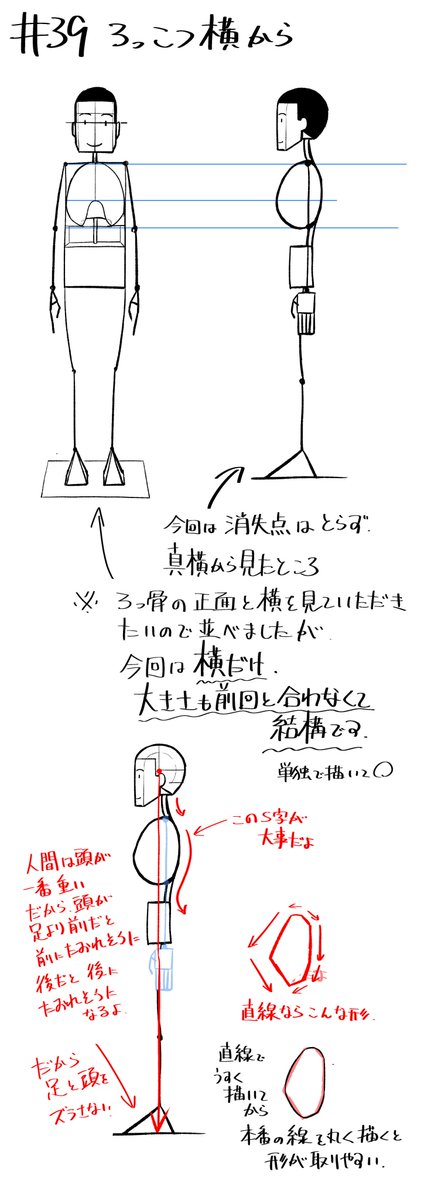 #39 ろっこつ横から
今回は消失点はとらず.
真横から見たところ
※ ろっ骨の正面と横を見ていただき
たいので並べましたが.
今回は横だけ.
大きさも前回と合わなくて
結構です.
単独で描いて〇
このS字が
大事だよ
人間は頭が
一番重い
だから、頭が
足より前だと
前にたおれそうに
後だと後に
たおれそうに
なるよ.
だから
足と頭を
ズラさない.
直線ならこんな形.
直線で
うすく
描いて
から
本番の線で丸く描くと
形が取りやすい.